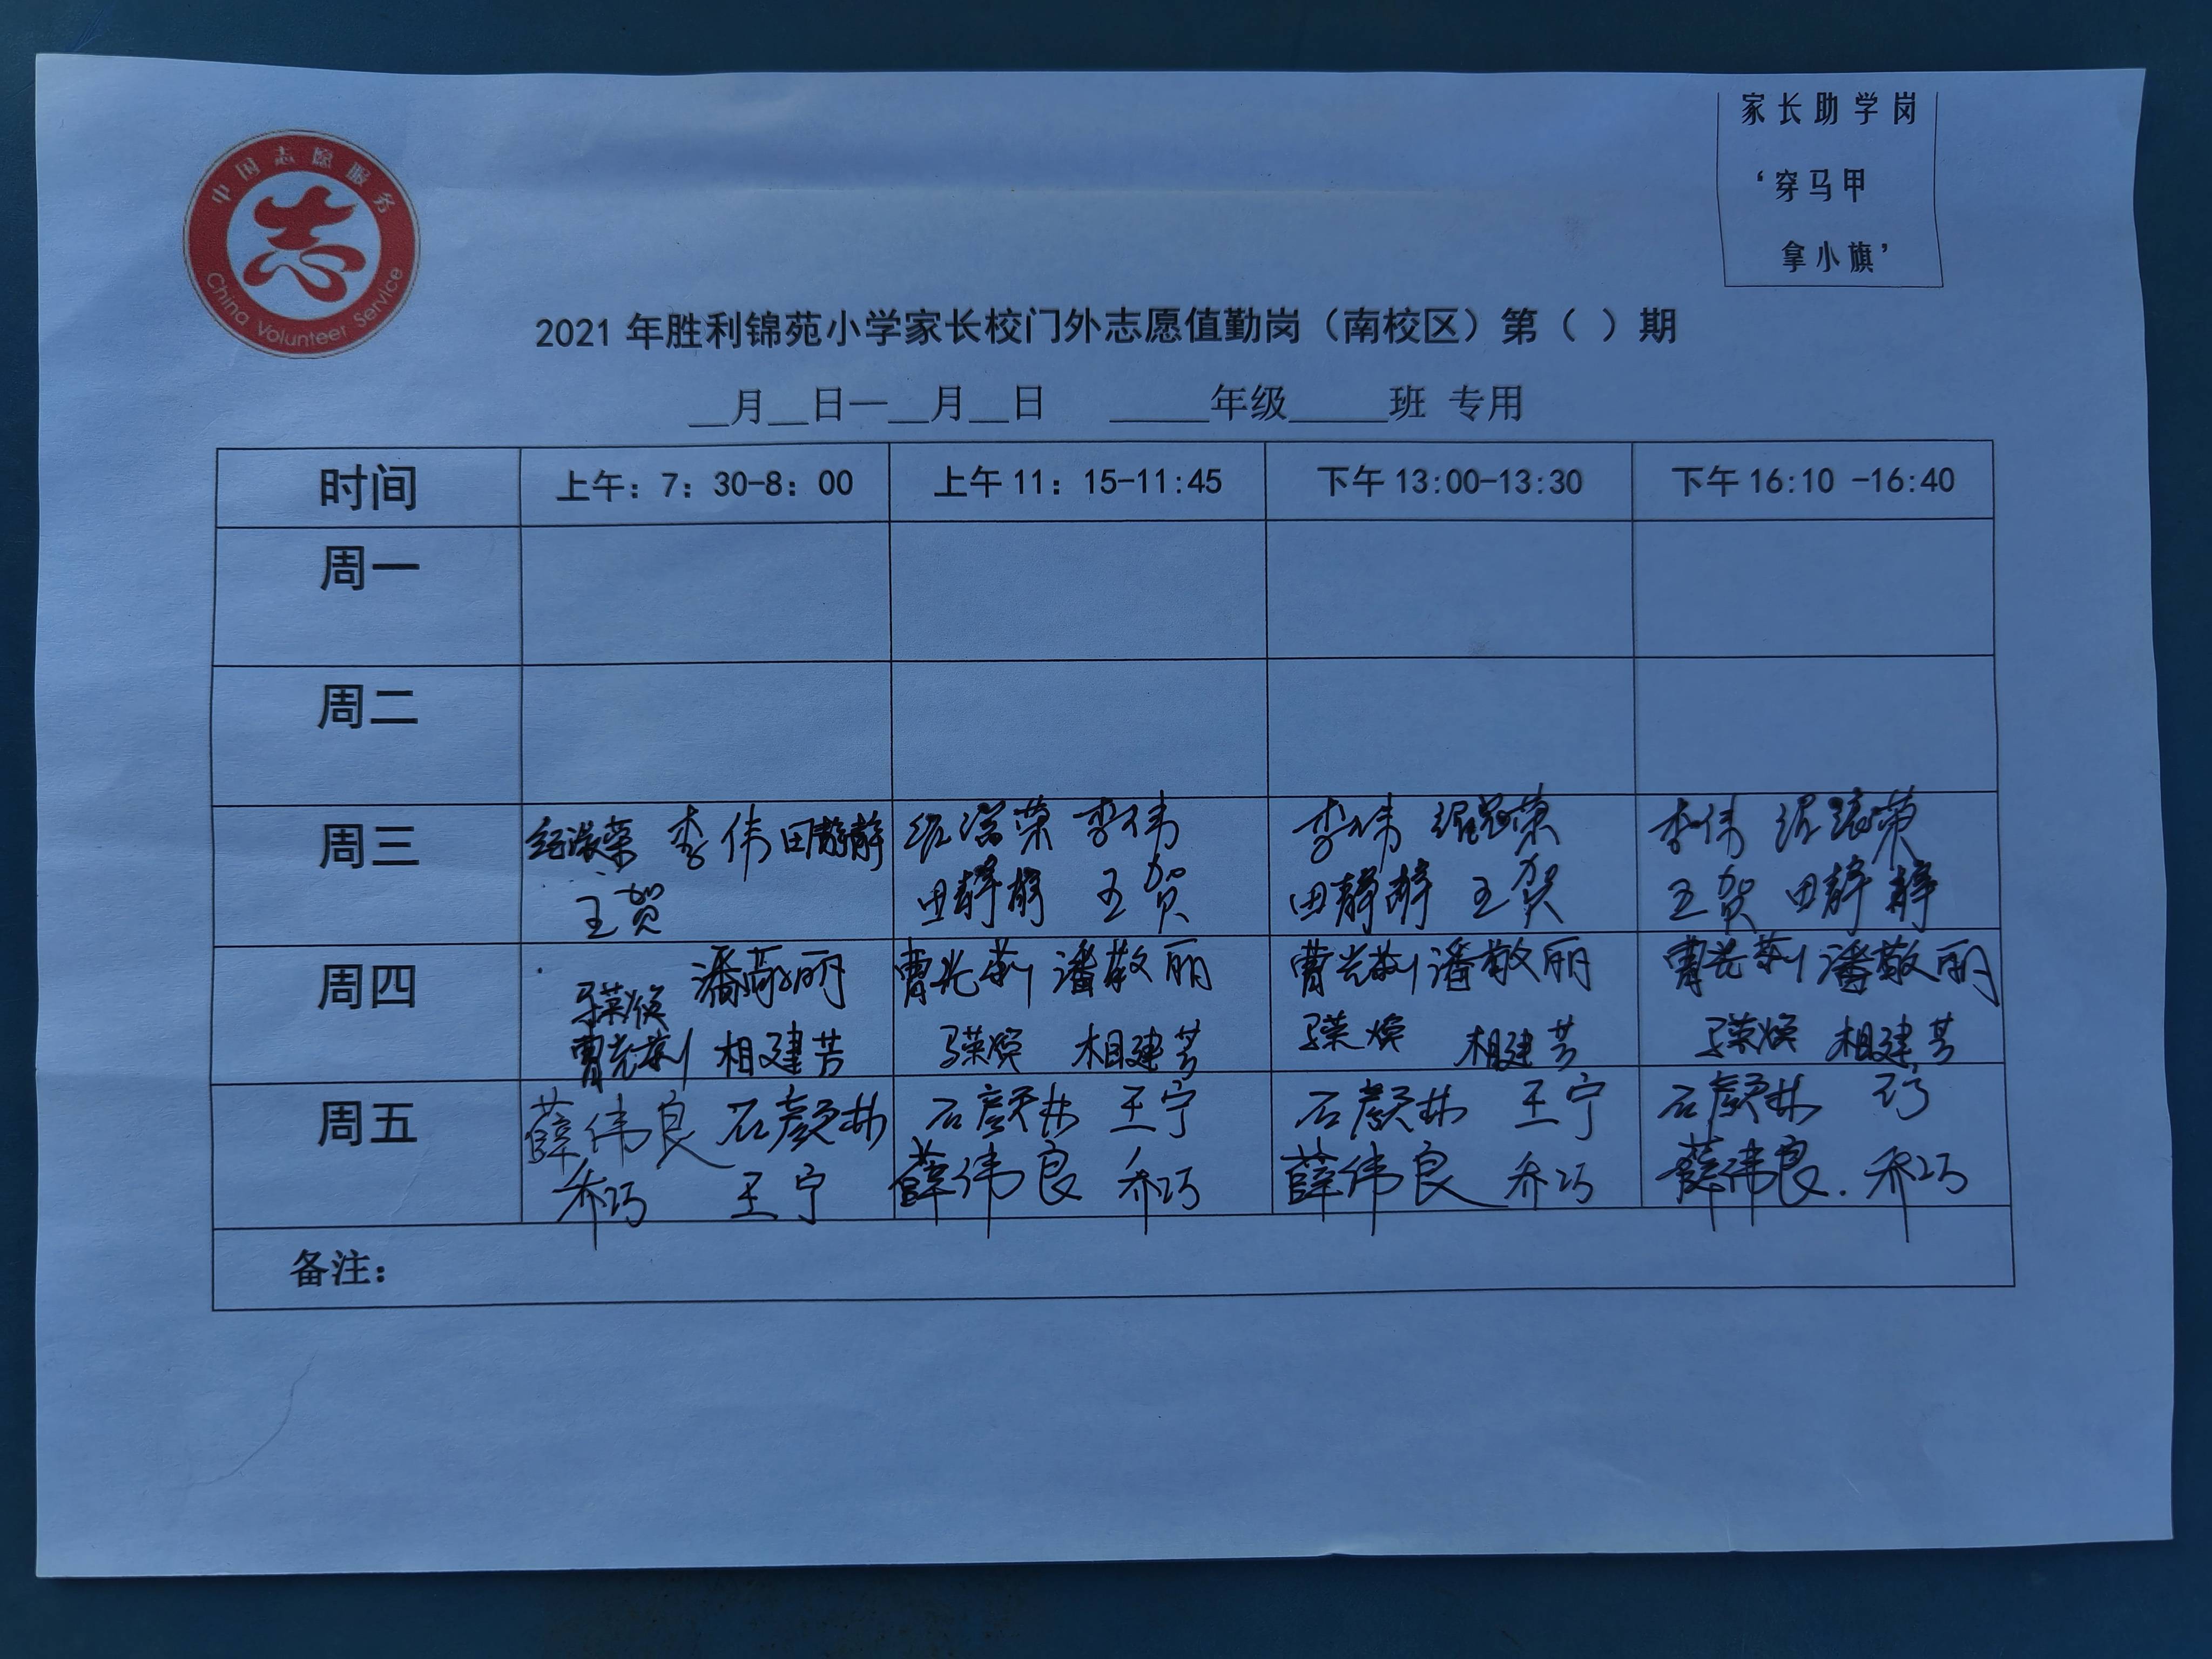 家长助学岗
‘穿马甲
拿小旗’
中国志愿服务
志
China Volunteer Service
2021年胜利锦苑小学家长校门外志愿值勤岗（南校区）第（ ）期
__月__日—__月__日 _____年级_____班 专用
时间 上午：7：30-8：00 上午11：15-11:45 下午13:00-13:30 下午16:10 -16:40
周一
周二
周三 李伟 田静静 李伟 李伟 李伟
王贺 田静静 王贺 田静静 王贺 王贺 田静静
周四 潘敬丽 潘敬丽 潘敬丽 潘敬丽
相建芳 相建芳 相建芳 相建芳
周五 薛伟良 石彦林 石彦林 王宁 石彦林 王宁 石彦林
乔巧 王宁 薛伟良 乔巧 薛伟良 乔巧 薛伟良. 乔巧
备注：